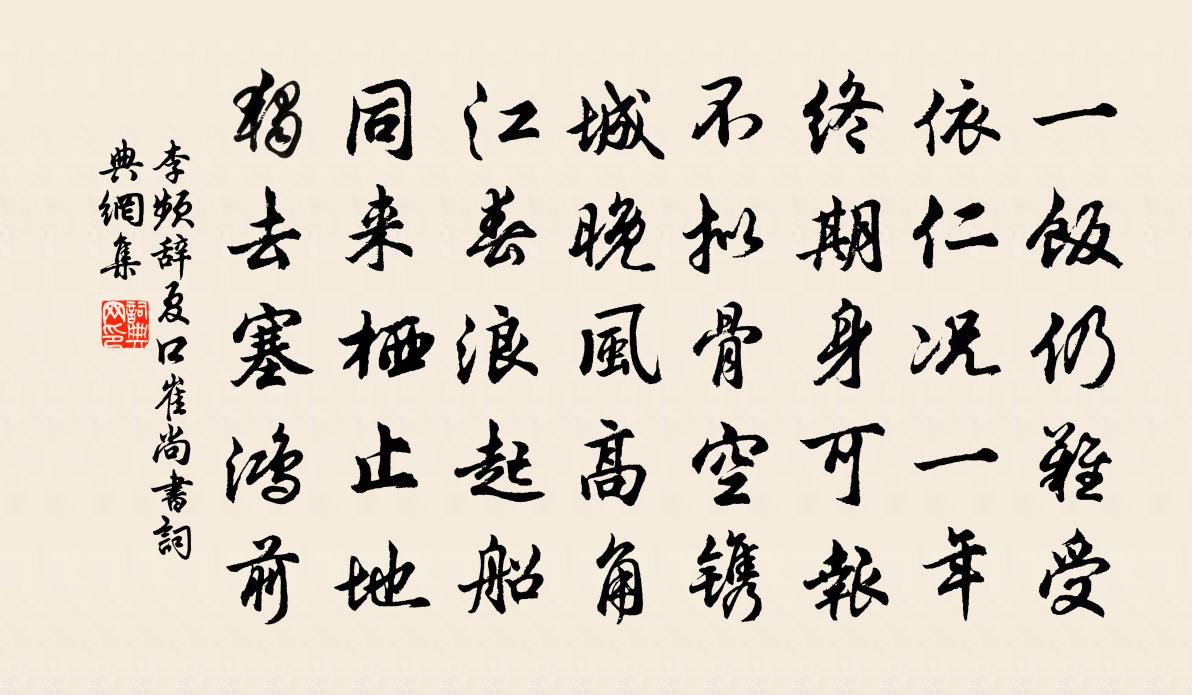 一飯仍難受
依仁况一年
终期身可報
不拟骨空镌
城晚風高角
江春浪起船
同来栖止地
獨去塞鸿前
李频辞夏口崔尚書詞
典網集
詞典网印